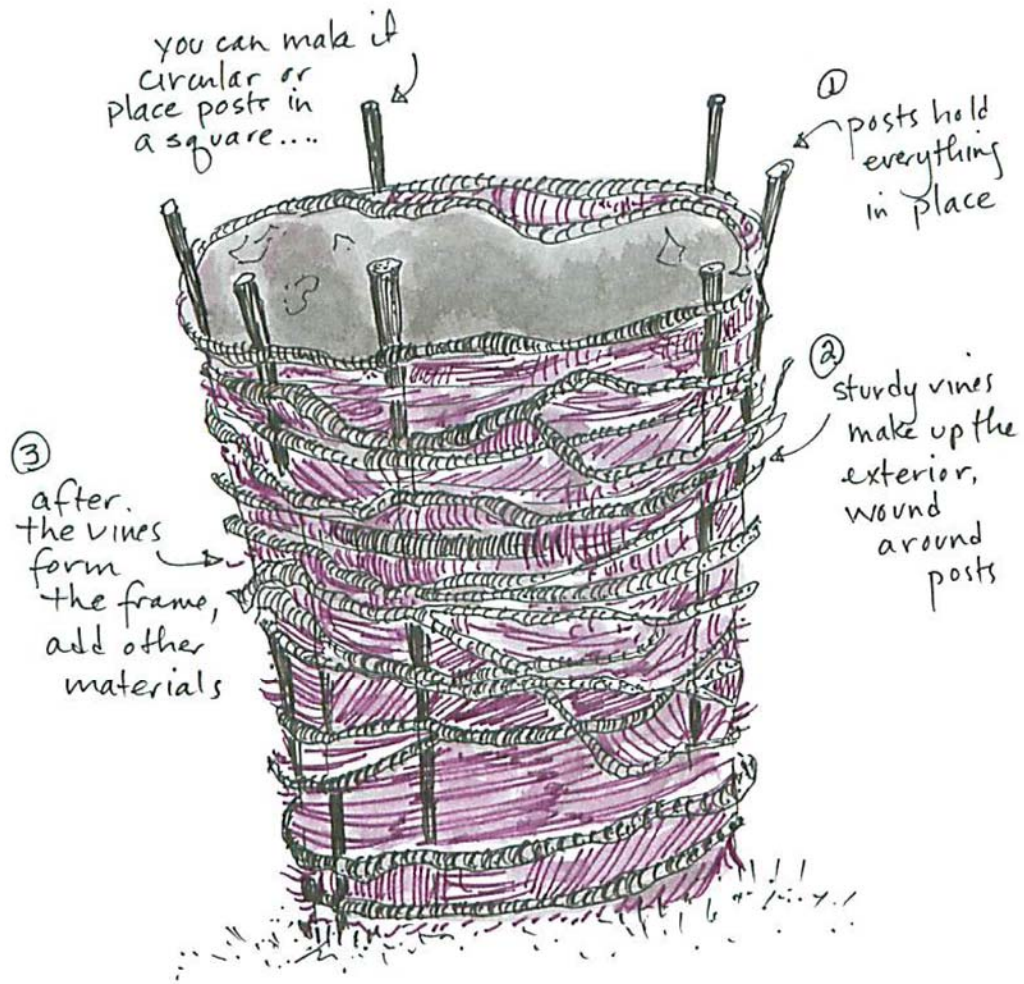 you can make it
circular or
place posts in
a square....
①
posts hold
everything
in place
②
sturdy vines
make up the
exterior,
wound
around
posts
③
after.
the vines
form
the frame,
add other
materials